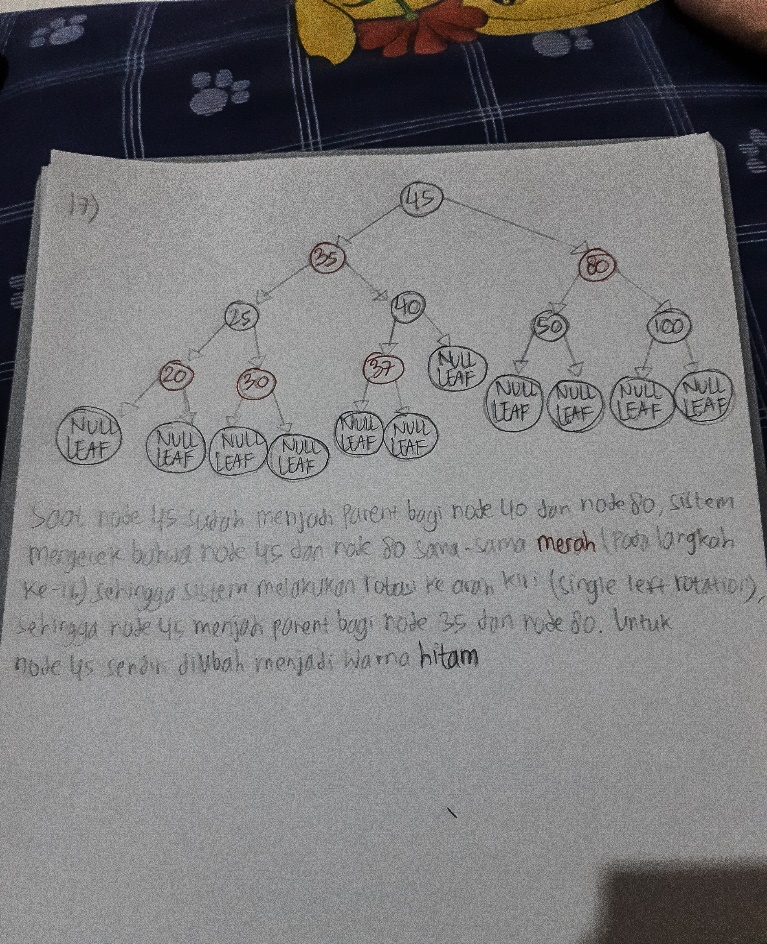 17)
45
35 80
25 40 50 100
20 30 37 NULL LEAF
NULL LEAF NULL LEAF NULL LEAF NULL LEAF
NULL LEAF NULL LEAF NULL LEAF NULL LEAF NULL LEAF NULL LEAF
Saat node 45 sudah menjadi parent bagi node 40 dan node 80, sistem
mengecek bahwa node 45 dan node 80 sama-sama merah (pada langkah
ke-16) sehingga sistem melakukan rotasi ke arah kiri (single left rotation),
sehingga node 45 menjadi parent bagi node 35 dan node 80. Untuk
node 45 sendiri diubah menjadi warna hitam